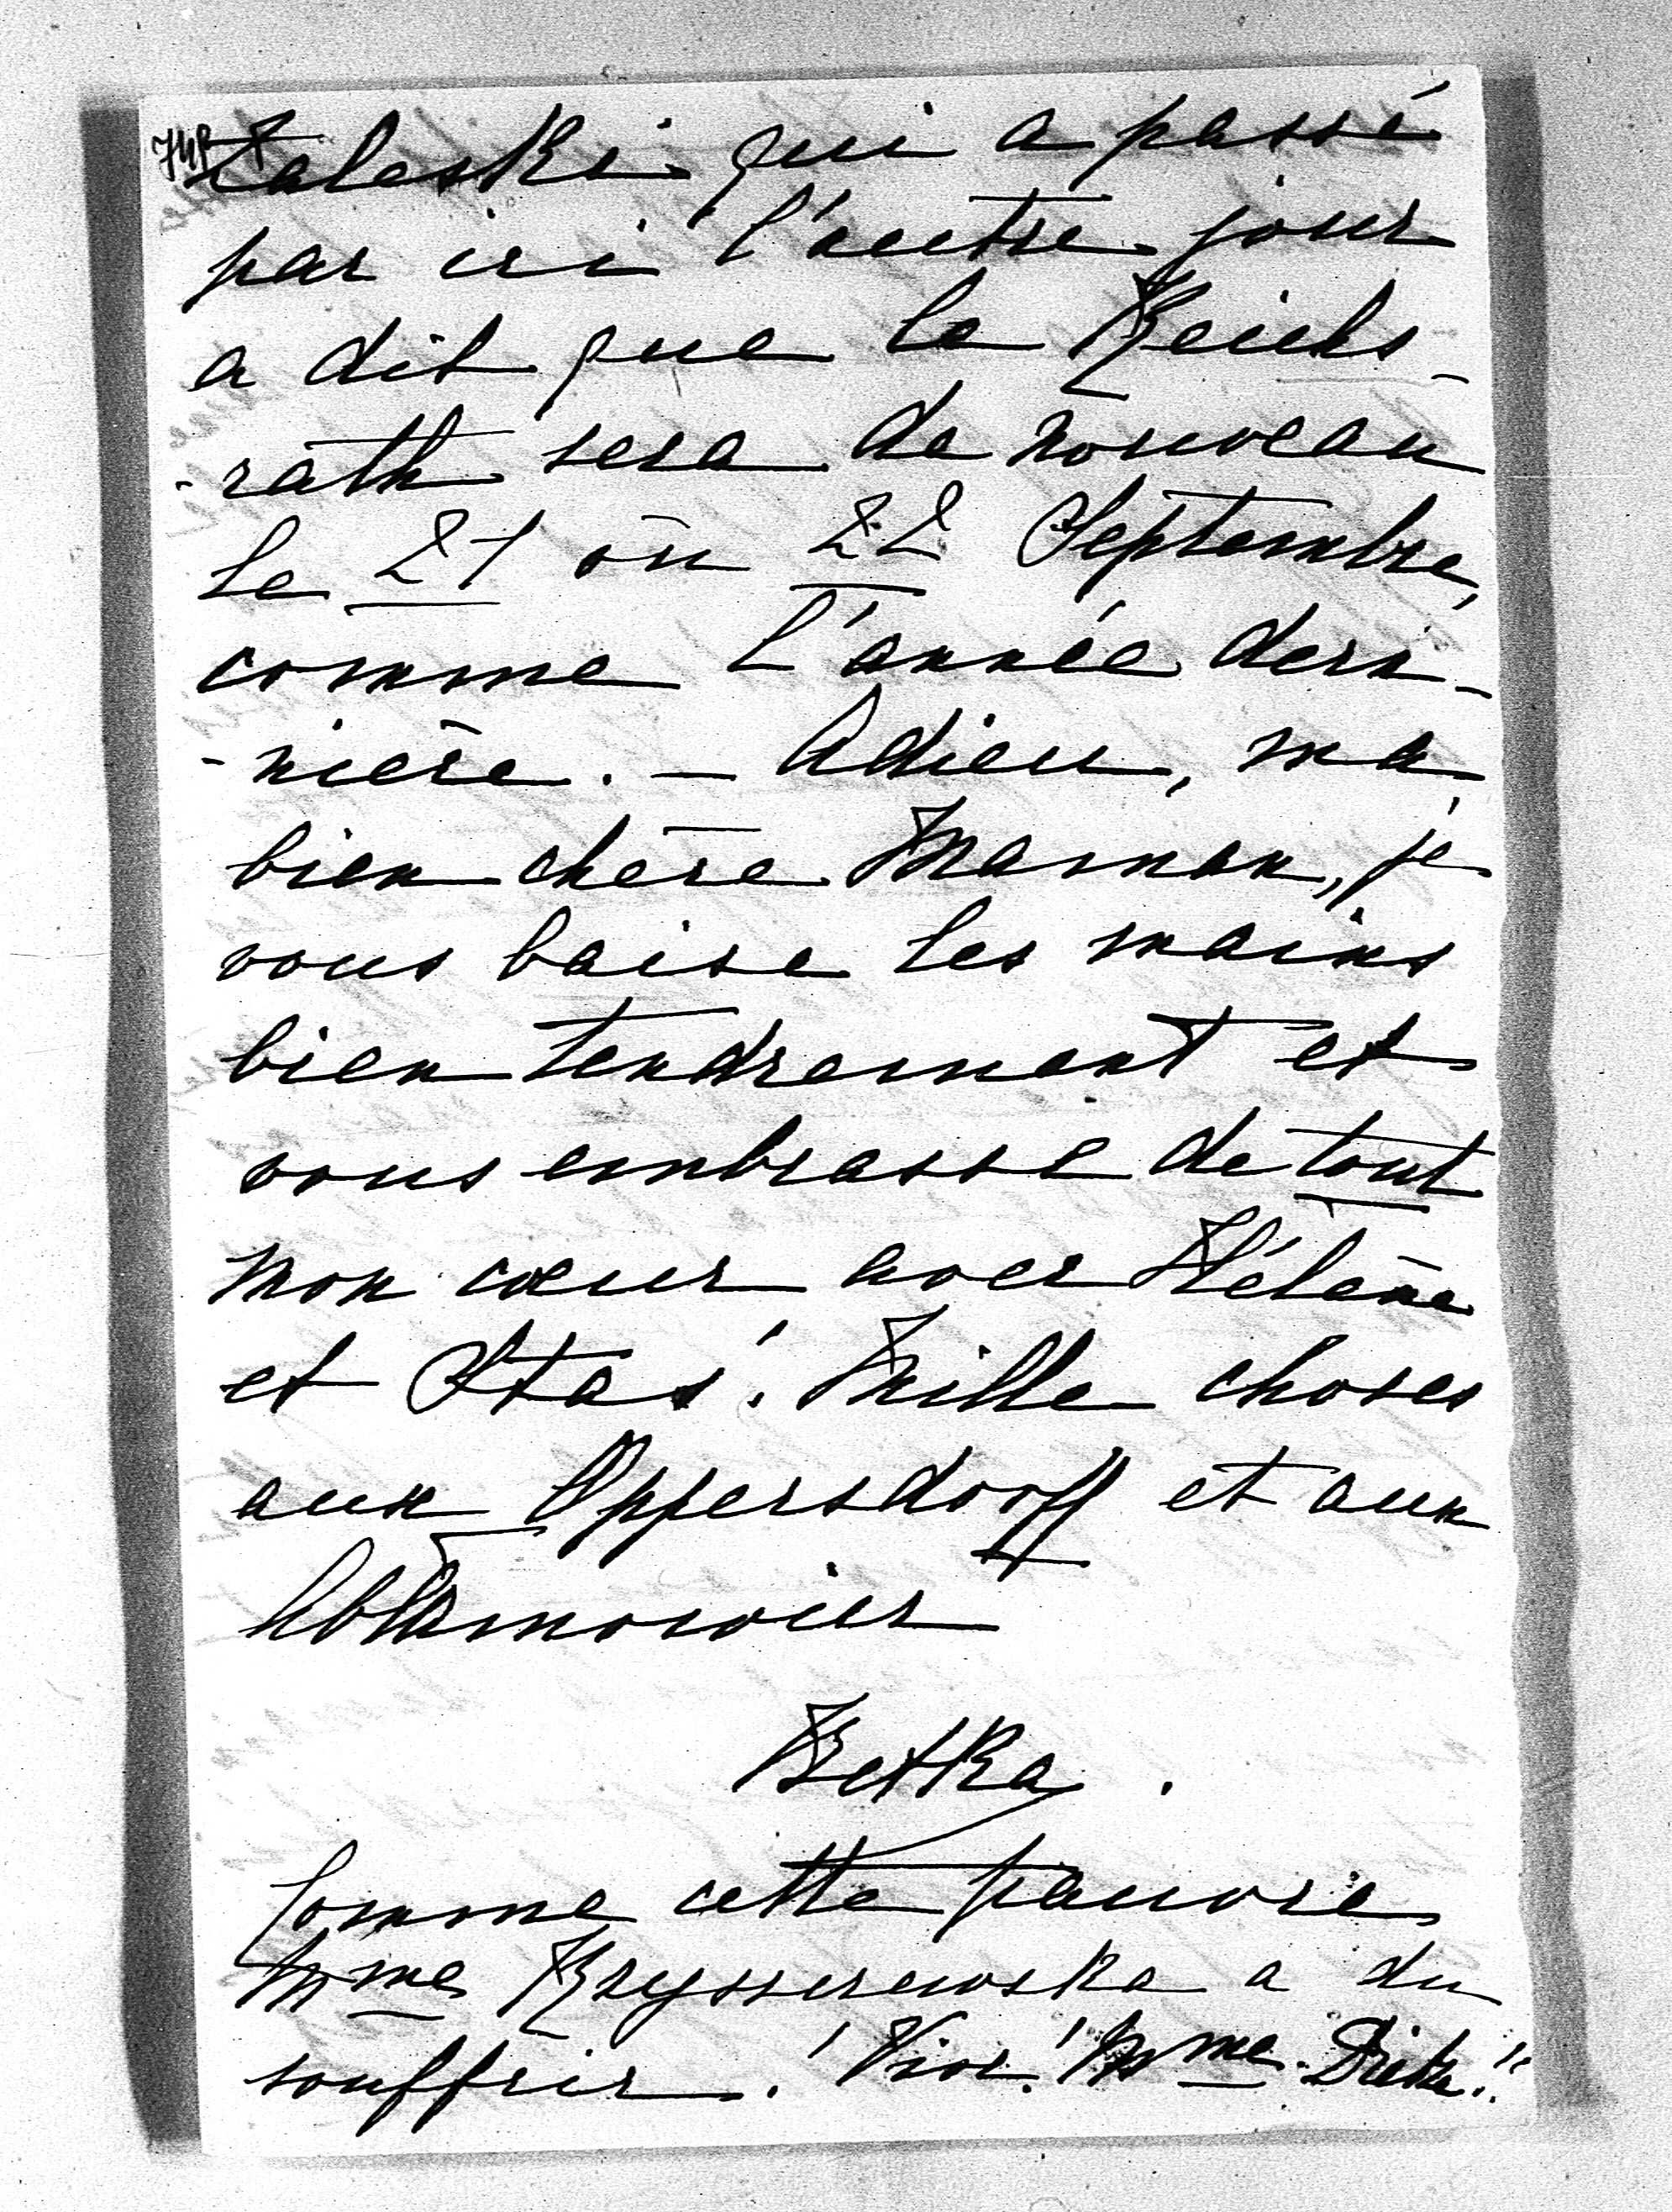 Zaleski qui a passé
par ici l'autre jour
a dit que le Reichs-
-rath sera de nouveau
le 21 ou 22 Septembre,
comme l'année der-
-nière. — Adieu, ma
bien chère Maman, je
vous baise les mains
bien tendrement et
vous embrasse de tout
mon cœur avec Hélène
et Staś. Mille choses
aux Oppersdorff et aux
Abłamowicz
Betka.
Comme cette pauvre
Mme Kryszczewska a du
souffrir! Mme